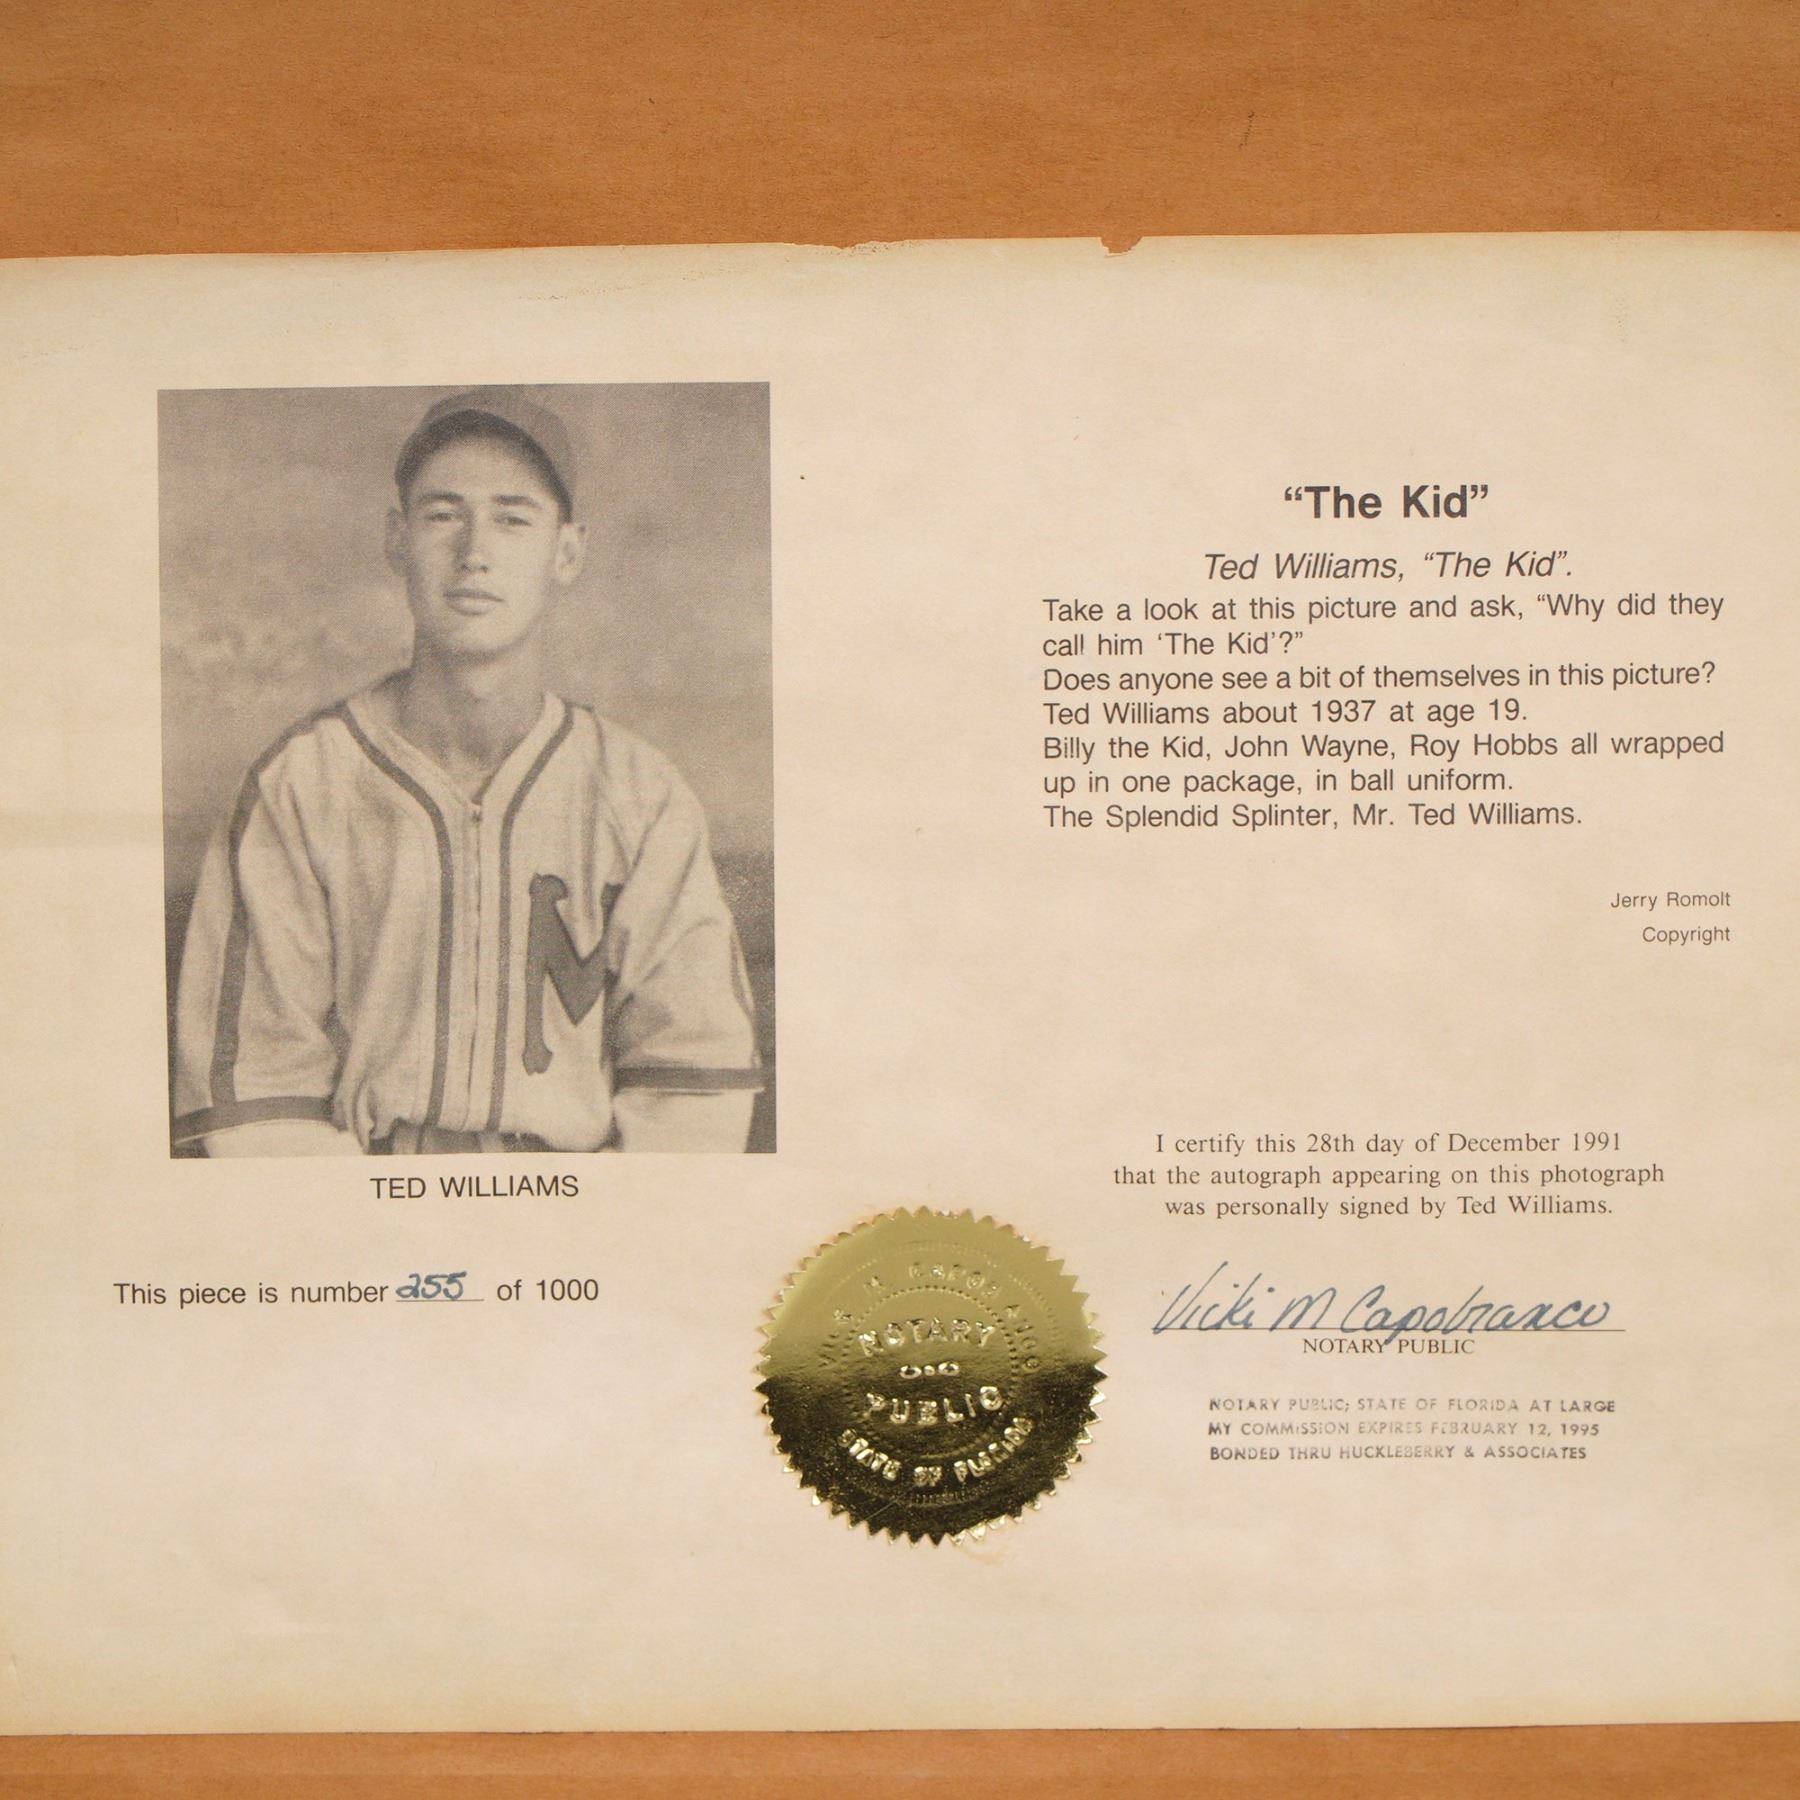 M
TED WILLIAMS
This piece is number 255 of 1000
“The Kid”
Ted Williams, “The Kid”.
Take a look at this picture and ask, “Why did they
call him ‘The Kid’?”
Does anyone see a bit of themselves in this picture?
Ted Williams about 1937 at age 19.
Billy the Kid, John Wayne, Roy Hobbs all wrapped
up in one package, in ball uniform.
The Splendid Splinter, Mr. Ted Williams.
Jerry Romolt
Copyright
I certify this 28th day of December 1991
that the autograph appearing on this photograph
was personally signed by Ted Williams.
Vicki M Capobranco
NOTARY PUBLIC
NOTARY PUBLIC; STATE OF FLORIDA AT LARGE
MY COMMISSION EXPIRES FEBRUARY 12, 1995
BONDED THRU HUCKLEBERRY & ASSOCIATES
NOTARY
PUBLIC
STATE OF FLORIDA